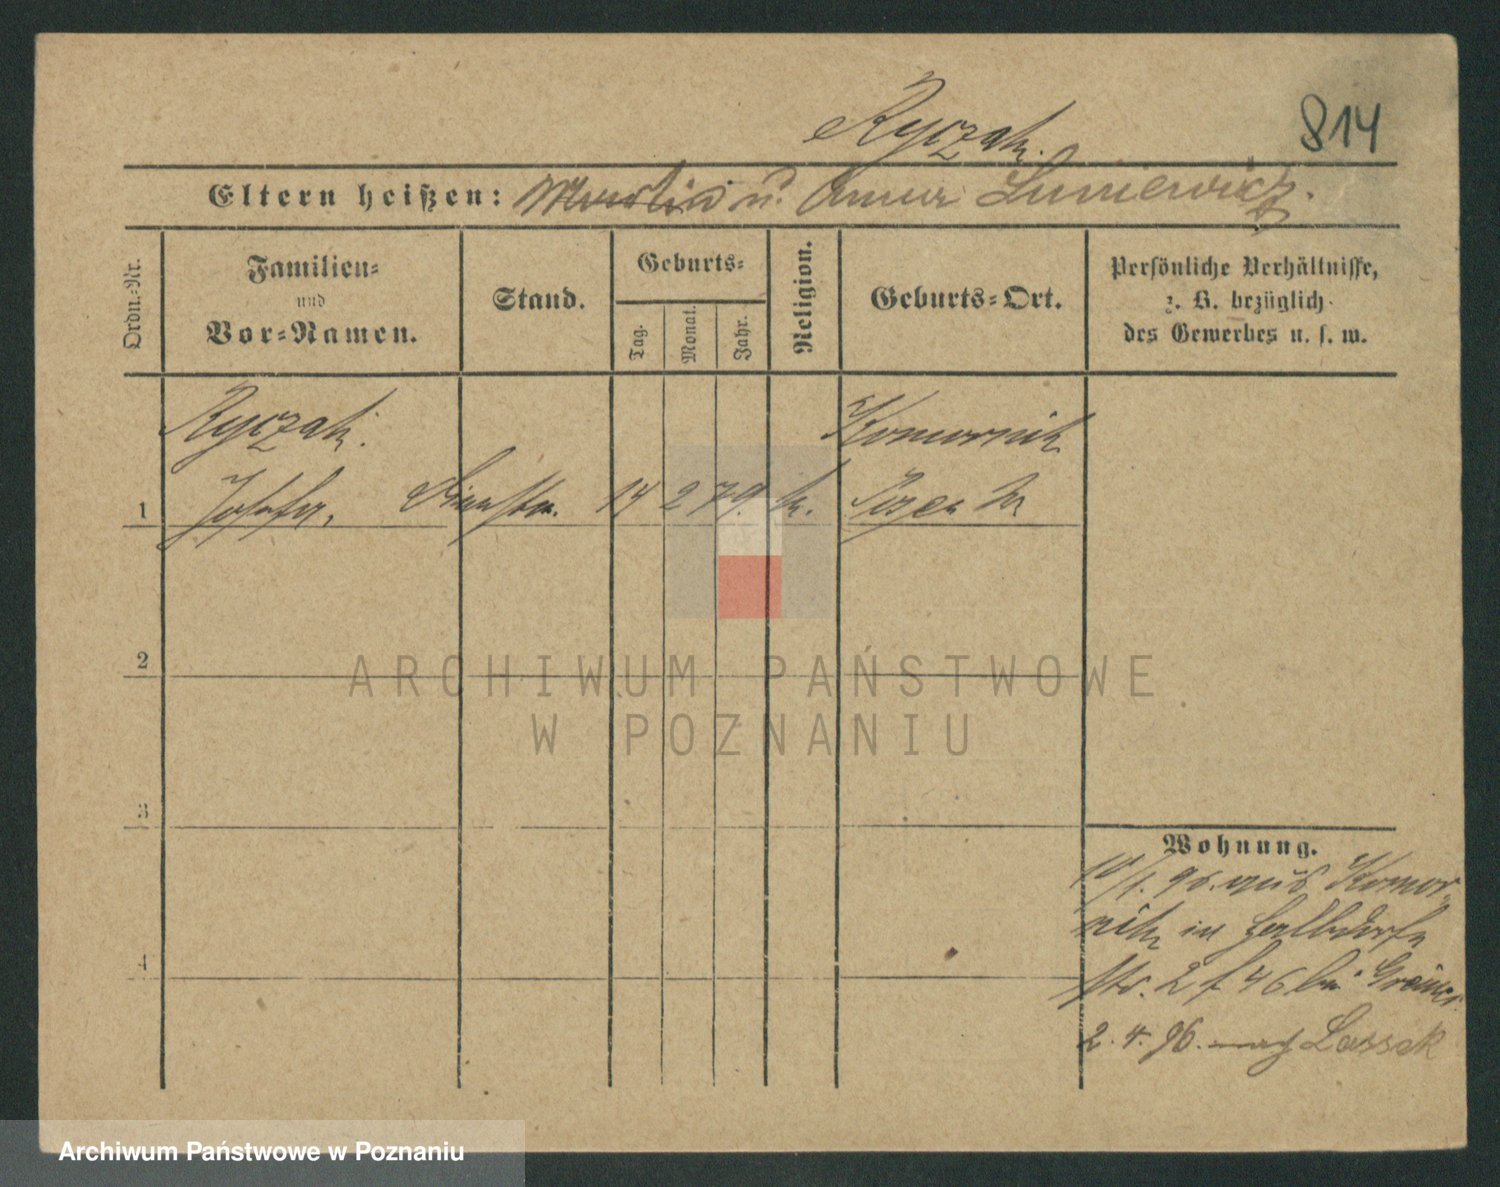 814
Ryczak.
Eltern heißen: u. Anna Luniewicz.
Ordn.-Nr.
Familien-
und
Vor-Namen.
Stand.
Geburts-
Tag.
Monat.
Jahr.
Religion.
Geburts-Ort.
Persönliche Verhältnisse,
z. B. bezüglich
des Gewerbes u. s. w.
Ryczak.
Komornik
1 Josefa. Dienstm. 14 2 79. k. Posen W
2
3
4
Wohnung.
10/1. 96. aus Komor-
nik in Halbdorf-
str. 2 f 46 bei
2. 4. 96. nach Lassek
ARCHIWUM PAŃSTWOWE
W POZNANIU
Archiwum Państwowe w Poznaniu